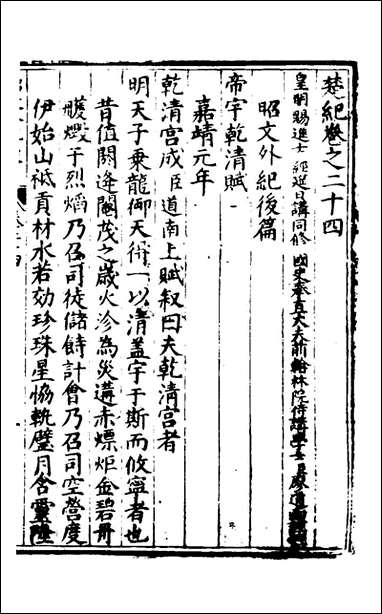 楚紀卷之二十四
皇明賜進士 經筵日講同修 國史奉直大夫前翰林院侍講學士臣廖道南
昭文外紀後篇
帝宇乾清賦
嘉靖元年
乾清宮成臣道南上賦叙曰夫乾清宮者
明天子乘龍御天得一以清蓋宇于斯而攸寧者也
昔值閼逢閹茂之歲火沴為災遘赤熛炬金碧哥
艧燬于烈熖乃召司徒儲餙計會乃召司空營度
伊始山祇貢材水若効珍珠星恊軌璧月含靈陞